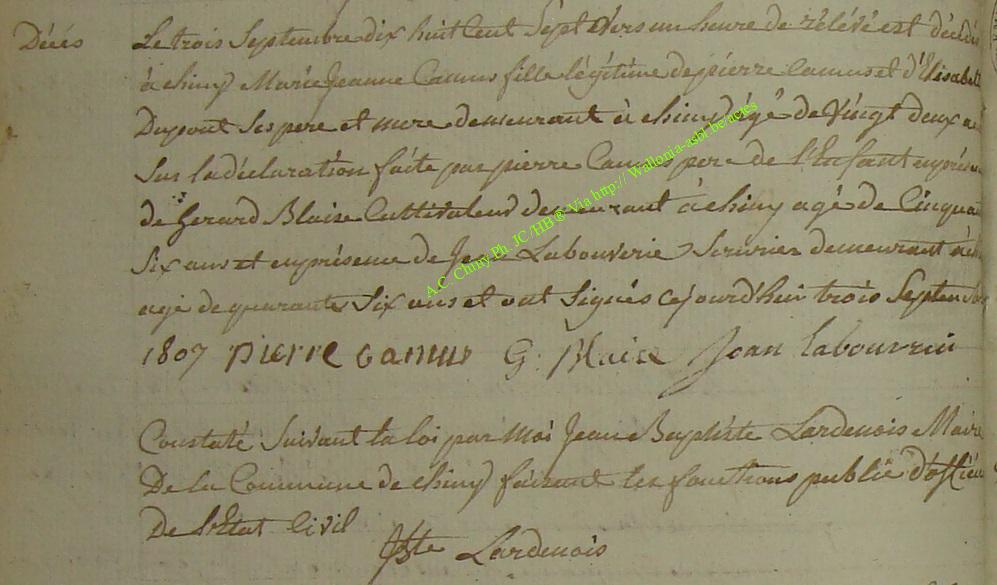 Décés
Le trois Septembre dix huit Cent Sept Vers un heure de rélévé est décédé
à chiny Marie Jeanne Camus fille légitime de pierre Camus et d'Elisabet
Dupont Ses pere et mere demeurant à chiny âgé de Vingt deux
Sur la déclaration faite par pierre Camus pere de l'Enfant en
de Gerard Blaise Cultivateur demeurant à chiny agé de Cinquan
Six ans et en présence de Jean Labouverie demeurant à
agé de quarante Six ans et ont Signés cejourd'hui trois Septembre
1807 pierre camus G. Blaise Joan labouvrie
Constaté Suivant la loi par moi Jean Baptiste Lardenois Maire
De la Commune de chiny faisant les fonctions publié d'officier
De l'Etat Civil
JBte Lardenois
A.C. Chiny Ph. JC/HB ® Via http:// Wallonia-asbl be/actes